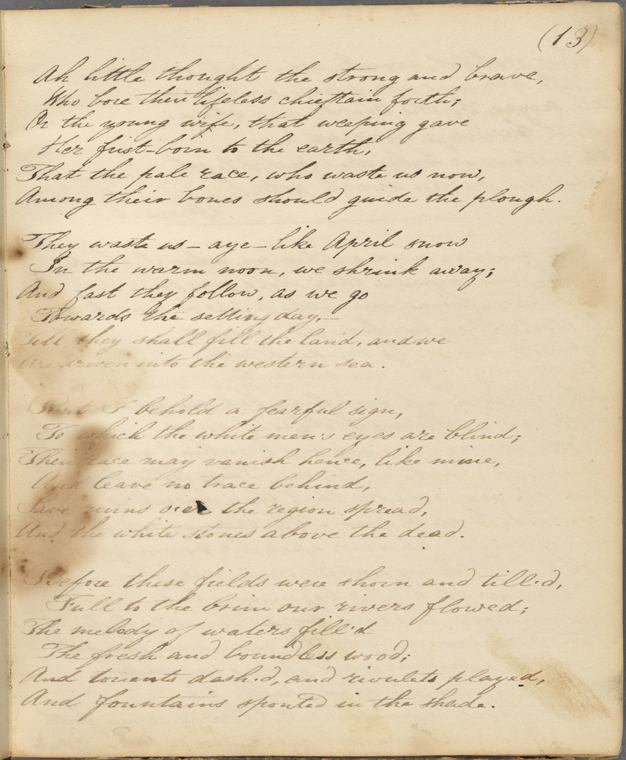 (13)
Ah little thought the strong and brave,
Who bore their lifeless chieftain forth;
Or the young wife, that weeping gave
Her first-born to the earth,
That the pale race, who waste us now,
Among their bones should guide the plough.
They waste us – aye – like April snow
In the warm noon, we shrink away;
And fast they follow, as we go
Towards the setting day,–
Till they shall fill the land, and we
Are driven into the western sea.
But I behold a fearful sign,
To which the white men's eyes are blind;
Their race may vanish hence, like mine,
And leave no trace behind,
Save ruins o'er the region spread,
And the white stones above the dead.
Before these fields were shorn and till'd,
Full to the brim our rivers flowed;
The melody of waters fill'd
The fresh and boundless wood;
And torrents dash'd, and rivulets played,
And fountains spouted in the shade.